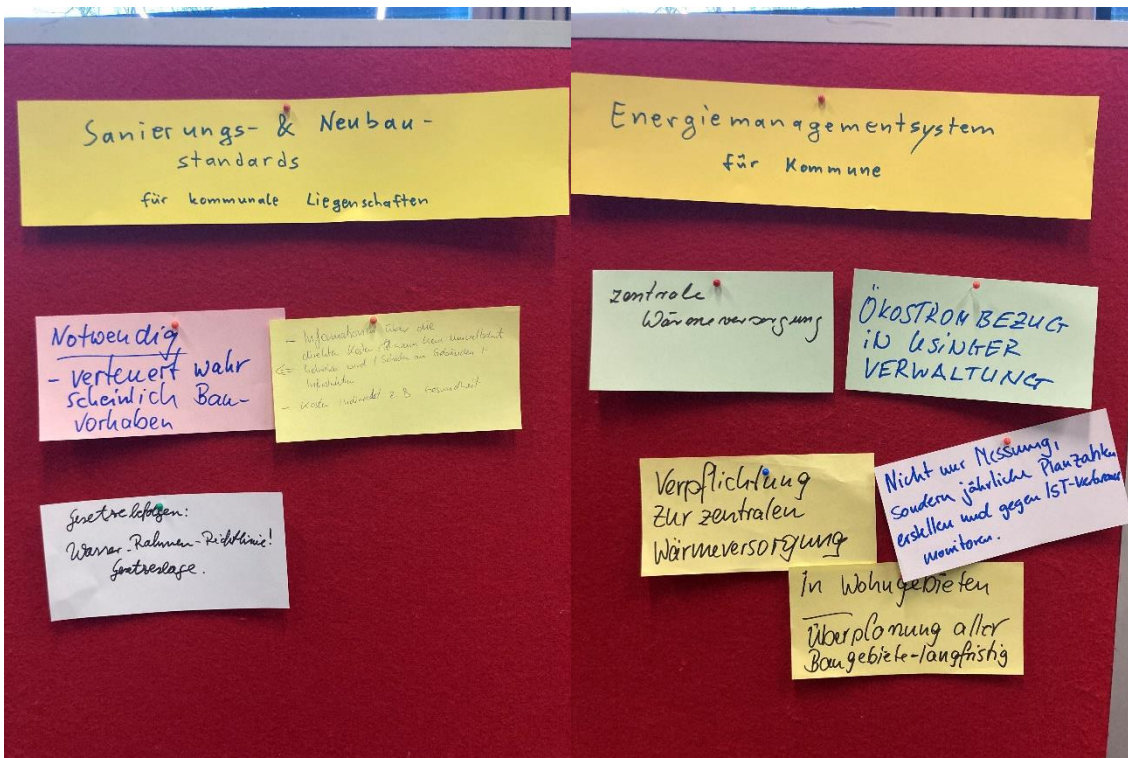 Sanierungs- & Neubau-
standards
für kommunale Liegenschaften
Notwendig
- verteuert wahr
scheinlich Bau-
vorhaben
- Information über die
direkten Kosten, wenn kein Umweltschutz
betrieben wird (Schäden an Gebäuden +
Infrastruktur
- Kosten indirekt z.B. Gesundheit
Gesetze befolgen:
Wasser-Rahmen-Richtlinie!
Gesetzeslage.
Energiemanagementsystem
für Kommune
zentrale
Wärmeversorgung
ÖKOSTROMBEZUG
IN USINGER
VERWALTUNG
Verpflichtung
zur zentralen
Wärmeversorgung
Nicht nur Messung,
sondern jährliche Planzahlen
erstellen und gegen IST-
monitoren.
In Wohngebieten
Überplanung aller
Baugebiete-langfristig